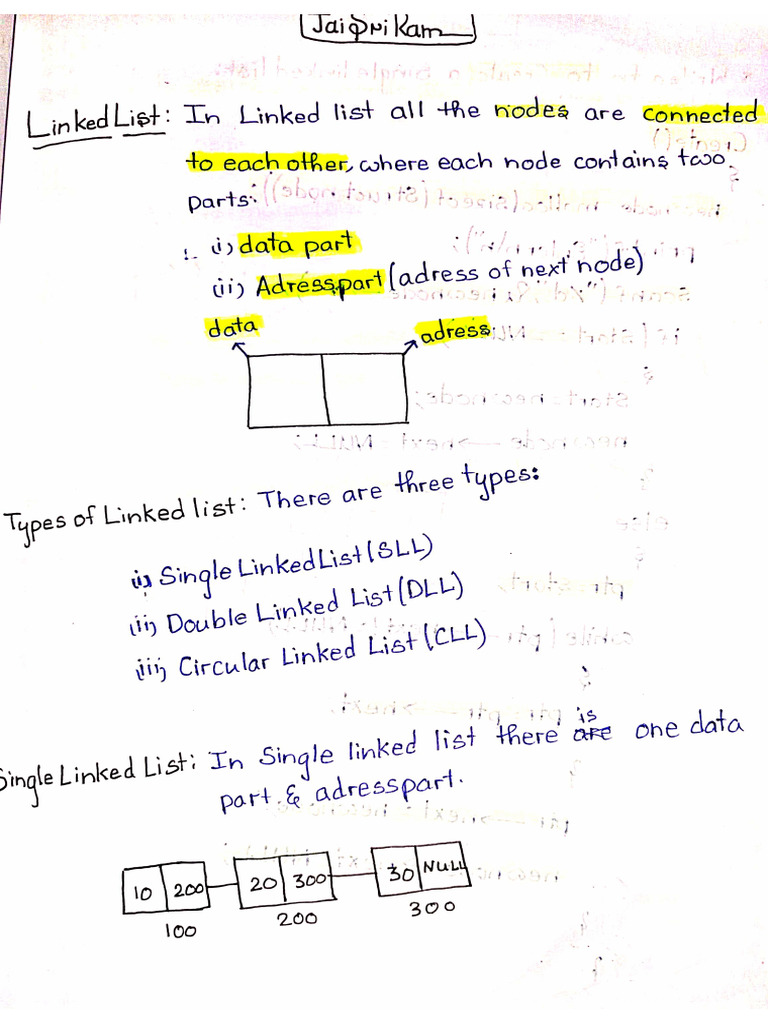 Linked List: In Linked list all the nodes are connected
to each other, where each node contains two
parts.
(i) data part
(ii) Adress part (adress of next node)
data
adress
Types of Linked list: There are three types:
(i) Single Linked List (SLL)
(ii) Double Linked List (DLL)
(iii) Circular Linked List (CLL)
Single Linked List: In Single linked list there is one data
part & adresspart.
10 200 20 300 30 NULL
100 200 300